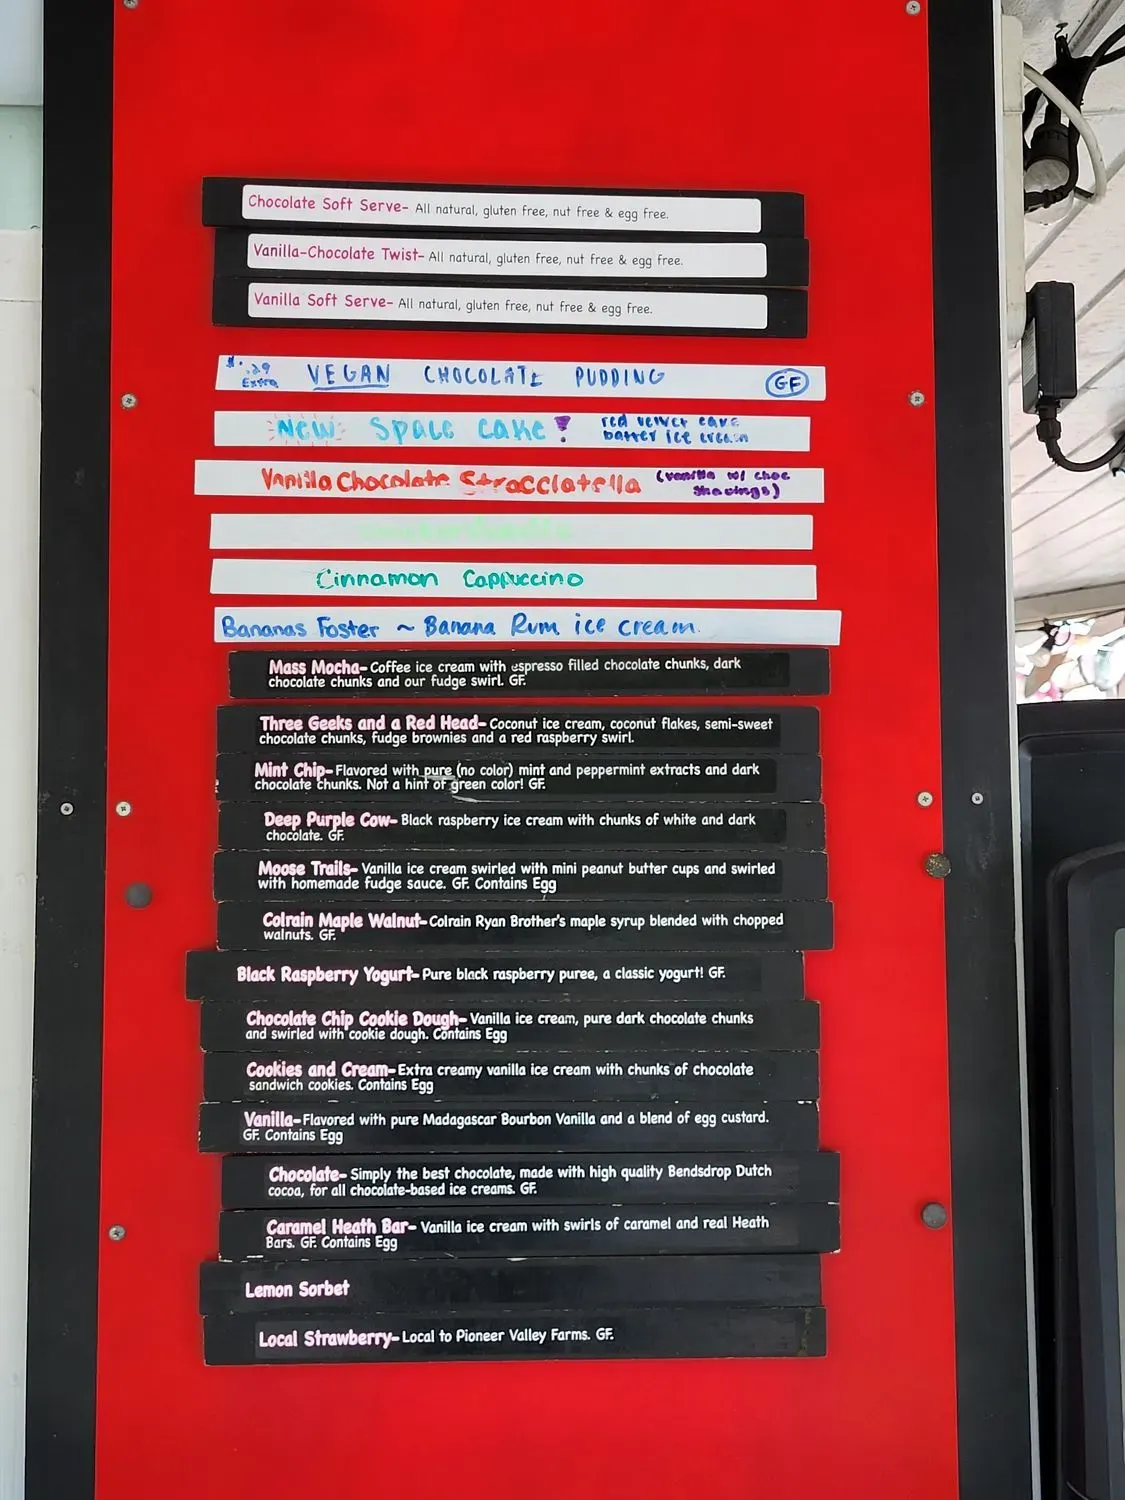 Chocolate Soft Serve- All natural, gluten free, nut free & egg free.
Vanilla-Chocolate Twist- All natural, gluten free, nut free & egg free.
Vanilla Soft Serve- All natural, gluten free, nut free & egg free.
$.29 Extra VEGAN CHOCOLATE PUDDING GF
NEW SPACE CAKE! red velvet cake
batter ice cream
Vanilla Chocolate Stracciatella (vanilla w/ choc
shavings)
Cinnamon Cappuccino
Bananas Foster ~ Banana Rum ice cream.
Mass Mocha- Coffee ice cream with espresso filled chocolate chunks, dark
chocolate chunks and our fudge swirl. GF.
Three Geeks and a Red Head- Coconut ice cream, coconut flakes, semi-sweet
chocolate chunks, fudge brownies and a red raspberry swirl.
Mint Chip- Flavored with pure (no color) mint and peppermint extracts and dark
chocolate chunks. Not a hint of green color! GF.
Deep Purple Cow- Black raspberry ice cream with chunks of white and dark
chocolate. GF.
Moose Trails- Vanilla ice cream swirled with mini peanut butter cups and swirled
with homemade fudge sauce. GF. Contains Egg
Colrain Maple Walnut- Colrain Ryan Brother's maple syrup blended with chopped
walnuts. GF.
Black Raspberry Yogurt- Pure black raspberry puree, a classic yogurt! GF.
Chocolate Chip Cookie Dough- Vanilla ice cream, pure dark chocolate chunks
and swirled with cookie dough. Contains Egg
Cookies and Cream- Extra creamy vanilla ice cream with chunks of chocolate
sandwich cookies. Contains Egg
Vanilla- Flavored with pure Madagascar Bourbon Vanilla and a blend of egg custard.
GF. Contains Egg
Chocolate- Simply the best chocolate, made with high quality Bendsdrop Dutch
cocoa, for all chocolate-based ice creams. GF.
Caramel Heath Bar- Vanilla ice cream with swirls of caramel and real Heath
Bars. GF. Contains Egg
Lemon Sorbet
Local Strawberry- Local to Pioneer Valley Farms. GF.